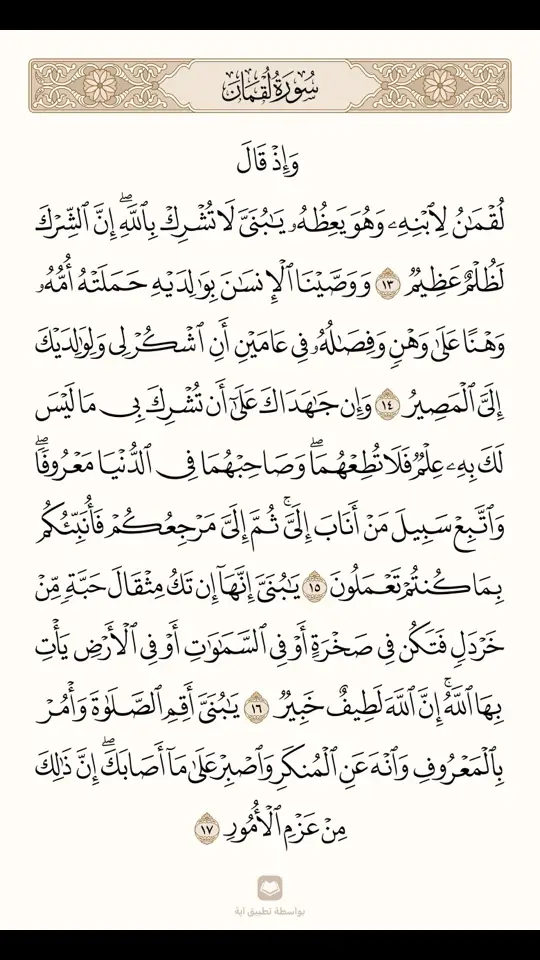 سُورَةُ لُقۡمَانَ
وَإِذۡ قَالَ
لُقۡمَٰنُ لِٱبۡنِهِۦ وَهُوَ يَعِظُهُۥ يَٰبُنَيَّ لَا تُشۡرِكۡ بِٱللَّهِۖ إِنَّ ٱلشِّرۡكَ
لَظُلۡمٌ عَظِيمٞ ١٣ وَوَصَّيۡنَا ٱلۡإِنسَٰنَ بِوَٰلِدَيۡهِ حَمَلَتۡهُ أُمُّهُۥ
وَهۡنًا عَلَىٰ وَهۡنٖ وَفِصَٰلُهُۥ فِي عَامَيۡنِ أَنِ ٱشۡكُرۡ لِي وَلِوَٰلِدَيۡكَ
إِلَيَّ ٱلۡمَصِيرُ ١٤ وَإِن جَٰهَدَاكَ عَلَىٰٓ أَن تُشۡرِكَ بِي مَا لَيۡسَ
لَكَ بِهِۦ عِلۡمٞ فَلَا تُطِعۡهُمَاۖ وَصَاحِبۡهُمَا فِي ٱلدُّنۡيَا مَعۡرُوفٗاۖ
وَٱتَّبِعۡ سَبِيلَ مَنۡ أَنَابَ إِلَيَّۚ ثُمَّ إِلَيَّ مَرۡجِعُكُمۡ فَأُنَبِّئُكُم
بِمَا كُنتُمۡ تَعۡمَلُونَ ١٥ يَٰبُنَيَّ إِنَّهَآ إِن تَكُ مِثۡقَالَ حَبَّةٖ مِّنۡ
خَرۡدَلٖ فَتَكُن فِي صَخۡرَةٍ أَوۡ فِي ٱلسَّمَٰوَٰتِ أَوۡ فِي ٱلۡأَرۡضِ يَأۡتِ
بِهَا ٱللَّهُۚ إِنَّ ٱللَّهَ لَطِيفٌ خَبِيرٞ ١٦ يَٰبُنَيَّ أَقِمِ ٱلصَّلَوٰةَ وَأۡمُرۡ
بِٱلۡمَعۡرُوفِ وَٱنۡهَ عَنِ ٱلۡمُنكَرِ وَٱصۡبِرۡ عَلَىٰ مَآ أَصَابَكَۖ إِنَّ ذَٰلِكَ
مِنۡ عَزۡمِ ٱلۡأُمُورِ ١٧
بواسطة تطبيق آية